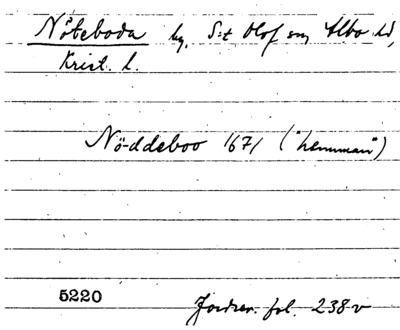 Nöteboda by, S:t Olof sn, Albo hd,
Krist. l.
Nöddeboo 1671 ("hemman")
5220 Jordrev. fol. 238 v